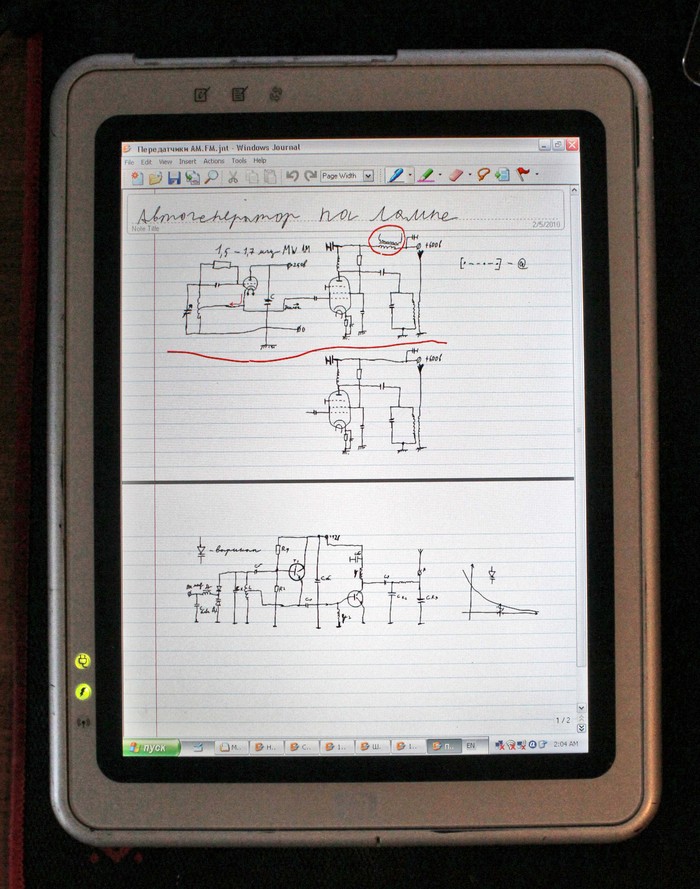 Передатчики AM.FM.jnt - Windows Journal
File Edit View Insert Actions Tools Help
Page Width
Автогенератор на лампе
Note Title
2/5/2010
1,5 - 1,7 мгц MW AM
+600в
[·---·-·] - @
+600в
- варикап
R1
1 / 2
пуск
M...
H...
C...
1...
Ш...
1...
П...
EN
2:04 AM